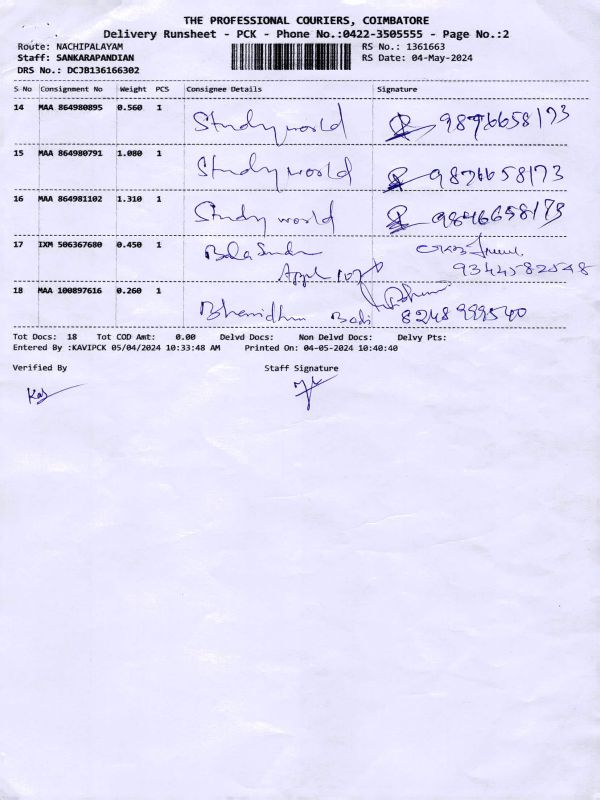 THE PROFESSIONAL COURIERS, COIMBATORE
Delivery Runsheet - PCK - Phone No.:0422-3505555 - Page No.:2
Route: NACHIPALAYAM RS No.: 1361663
Staff: SANKARAPANDIAN RS Date: 04-May-2024
DRS No.: DCJB136166302
S No Consignment No Weight PCS Consignee Details Signature
14 MAA 864980895 0.560 1 Study world 9876658173
15 MAA 864980791 1.080 1 Study world 9876658173
16 MAA 864981102 1.310 1 Study world
17 IXM 506367680 0.450 1 Bala
9344582548
18 MAA 100897616 0.260 1
8248999540
Tot Docs: 18 Tot COD Amt: 0.00 Delvd Docs: Non Delvd Docs: Delvy Pts:
Entered By :KAVIPCK 05/04/2024 10:33:48 AM Printed On: 04-05-2024 10:40:40
Verified By Staff Signature